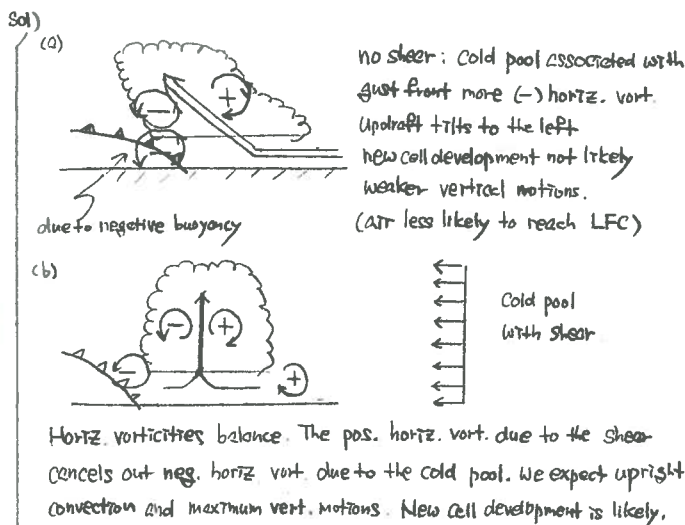 Sol)
(a)
no shear : Cold pool associated with
gust front more (-) horiz. vort.
updraft tilts to the left
new cell development not likely
weaker vertical motions.
(air less likely to reach LFC)
+
-
-
due to negative buoyancy
(b)
-
+
-
+
Cold pool
with shear
Horiz. vorticities balance. The pos. horiz. vort. due to the shear
cancels out neg. horiz vort. due to the cold pool. We expect upright
convection and maximum vert. motions. New cell development is likely.